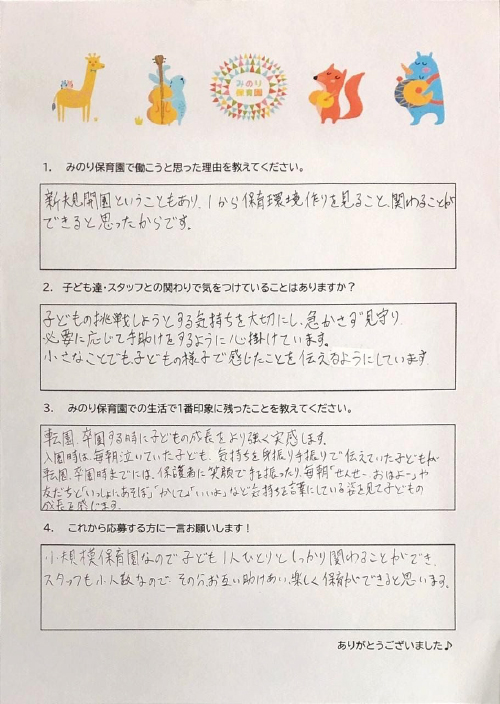 みのり
保育園
1. みのり保育園で働こうと思った理由を教えてください。
新規開園ということもあり、1から保育環境作りを見ること、関わることが
できると思ったからです。
2. 子ども達・スタッフとの関わりで気をつけていることはありますか？
子どもの挑戦しようとする気持ちを大切にし、急かさず見守り
必要に応じて手助けをするように心掛けています。
小さなことでも子どもの様子で感じたことを伝えるようにしています
3. みのり保育園での生活で1番印象に残ったことを教えてください。
転園、卒園する時に子どもの成長をより強く実感します。
入園時は、毎朝泣いていた子ども、気持ちを身振り手振りで伝えていた子どもが
転園、卒園時までには、保護者に笑顔で手を振ったり、毎朝「せんせー、おはよー」や
友だちと「いっしょにあそぼ」「かして」「いいよ」など気持ちを言葉にしている姿を見て子どもの
成長を感じます。
4. これから応募する方に一言お願いします！
小規模保育園なので子ども1人ひとりとしっかり関わることができ、
スタッフも少人数なので、その分お互い助けあい、楽しく保育ができると思います。
ありがとうございました♪